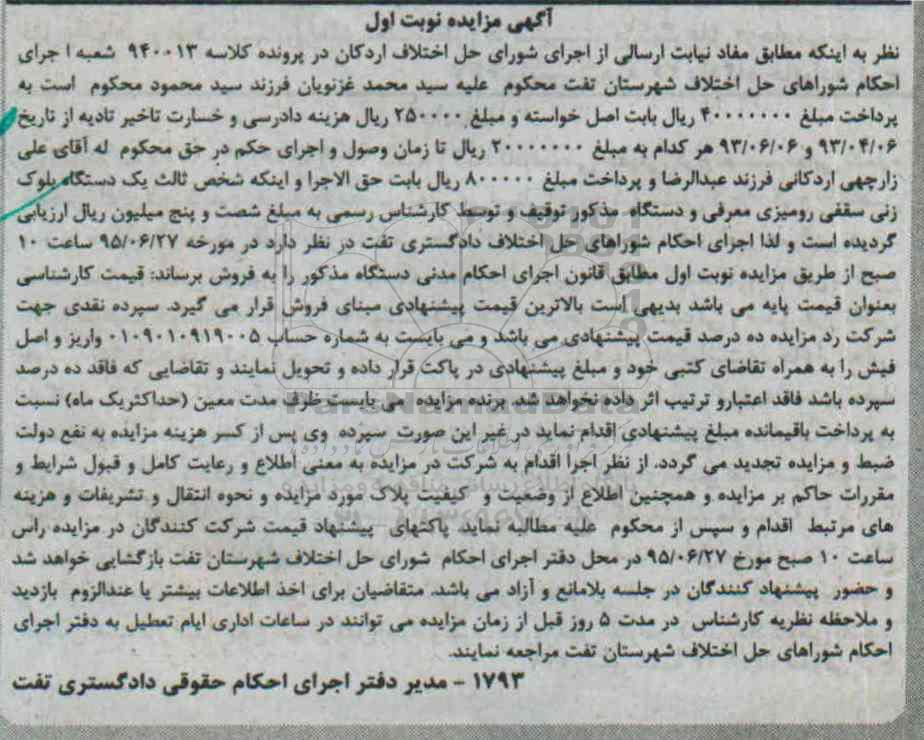 آگهی مزایده نوبت اول
نظر به اینکه مطابق مفاد نیابت ارسالی از اجرای شورای حل اختلاف اردکان در پرونده کلاسه ۹۴۰۰۱۳ شعبه ا جرای
احکام شوراهای حل اختلاف شهرستان تفت محکوم علیه سید محمد غزنویان فرزند سید محمود محکوم است به
پرداخت مبلغ ۴۰۰۰۰۰۰۰ ریال بابت اصل خواسته و مبلغ ۲۵۰۰۰۰ ریال هزینه دادرسی و خسارت تاخیر تادیه از تاریخ
۹۳/۰۴/۰۶ و ۹۳/۰۶/۰۶ هر کدام به مبلغ ۲۰۰۰۰۰۰۰ ریال تا زمان وصول و اجرای حکم در حق محکوم له آقای علی
زارچهی اردکانی فرزند عبدالرضا و پرداخت مبلغ ۸۰۰۰۰۰ ریال بابت حق الاجرا و اینکه شخص ثالث یک دستگاه بلوک
زنی سقفی رومیزی معرفی و دستگاه مذکور توقیف و توسط کارشناس رسمی به مبلغ شصت و پنج میلیون ریال ارزیابی
گردیده است و لذا اجرای احکام شوراهای حل اختلاف دادگستری تفت در نظر دارد در مورخه ۹۵/۰۶/۲۷ ساعت ۱۰
صبح از طریق مزایده نوبت اول مطابق قانون اجرای احکام مدنی دستگاه مذکور را به فروش برساند: قیمت کارشناسی
بعنوان قیمت پایه می باشد بدیهی است بالاترین قیمت پیشنهادی مبنای فروش قرار می گیرد. سپرده نقدی جهت
شرکت رد مزایده ده درصد قیمت پیشنهادی می باشد و می بایست به شماره حساب ۰۱۰۹۰۱۰۹۱۹۰۰۵ واریز و اصل
فیش را به همراه تقاضای کتبی خود و مبلغ پیشنهادی در پاکت قرار داده و تحویل نمایند و تقاضایی که فاقد ده درصد
سپرده باشد فاقد اعتبارو ترتیب اثر داده نخواهد شد. برنده مزایده می بایست ظرف مدت معین (حداکثریک ماه) نسبت
به پرداخت باقیمانده مبلغ پیشنهادی اقدام نماید در غیر این صورت سپرده وی پس از کسر هزینه مزایده به نفع دولت
ضبط و مزایده تجدید می گردد. از نظر اجرا اقدام به شرکت در مزایده به معنی اطلاع و رعایت کامل و قبول شرایط و
مقررات حاکم بر مزایده و همچنین اطلاع از وضعیت و کیفیت پلاک مورد مزایده و نحوه انتقال و تشریفات و هزینه
های مرتبط اقدام و سپس از محکوم علیه مطالبه نماید پاکتهای پیشنهاد قیمت شرکت کنندگان در مزایده راس
ساعت ۱۰ صبح مورخ ۹۵/۰۶/۲۷ در محل دفتر اجرای احکام شورای حل اختلاف شهرستان تفت بازگشایی خواهد شد
و حضور پیشنهاد کنندگان در جلسه بلامانع و آزاد می باشد. متقاضیان برای اخذ اطلاعات بیشتر یا عندالزوم بازدید
و ملاحظه نظریه کارشناس در مدت ۵ روز قبل از زمان مزایده می توانند در ساعات اداری ایام تعطیل به دفتر اجرای
احکام شوراهای حل اختلاف شهرستان تفت مراجعه نمایند.
۱۷۹۳ - مدیر دفتر اجرای احکام حقوقی دادگستری تفت
ParsNamadData